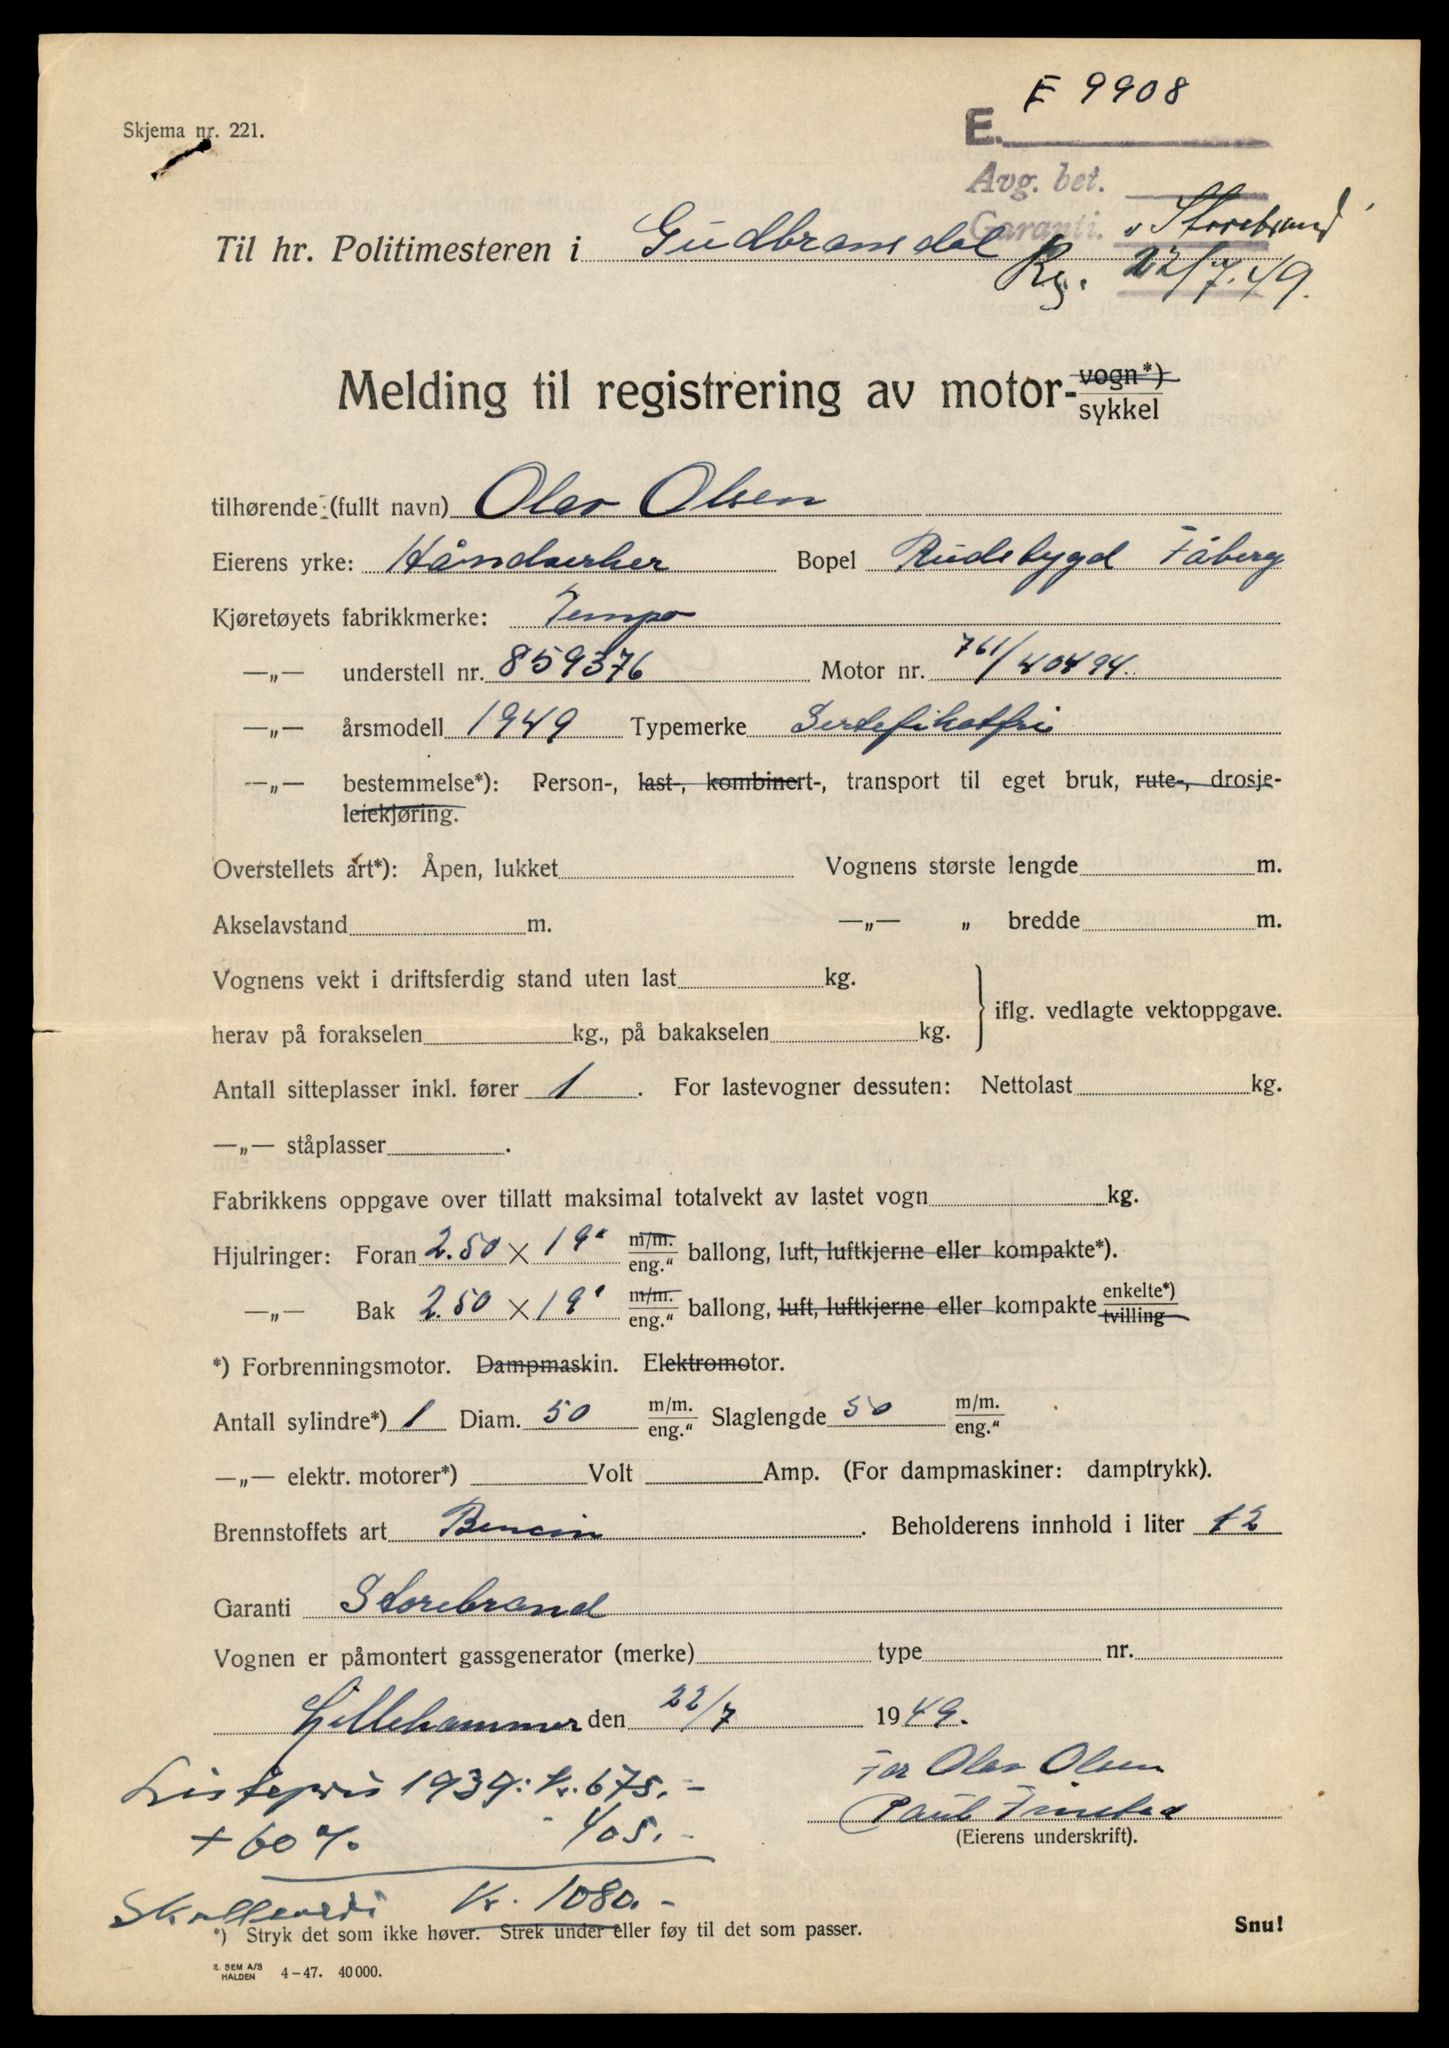 E 9908
Skjema nr. 221.
E.
Avg. bet.
Garanti. "Storebrand"
Til hr. Politimesteren i Gudbransdal
Rg. 22/7.49.
Melding til registrering av motor-vogn*)
sykkel
tilhørende: (fullt navn) Olav Olsen
Eierens yrke: Håndverker Bopel Rudsbygd Fåberg
Kjøretøyets fabrikkmerke: Tempo
—„— understell nr. 859376 Motor nr. 761/40494
—„— årsmodell 1949 Typemerke Sertefikatfri
—„— bestemmelse*): Person-, last-, kombinert-, transport til eget bruk, rute-, drosje-
leiekjøring.
Overstellets art*): Åpen, lukket Vognens største lengde m.
Akselavstand m. —„— „ bredde m.
Vognens vekt i driftsferdig stand uten last kg.
iflg. vedlagte vektoppgave.
herav på forakselen kg., på bakakselen kg.
Antall sitteplasser inkl. fører 1 . For lastevogner dessuten: Nettolast kg.
—„— ståplasser .
Fabrikkens oppgave over tillatt maksimal totalvekt av lastet vogn kg.
Hjulringer: Foran 2.50 × 19" m/m. eng.“ ballong, luft, luftkjerne eller kompakte*).
—„— Bak 2.50 × 19" m/m. eng.“ ballong, luft, luftkjerne eller kompakte enkelte*) tvilling
*) Forbrenningsmotor. Dampmaskin. Elektromotor.
Antall sylindre*) 1 Diam. 50 m/m. eng.“ Slaglengde 50 m/m. eng.“
—„— elektr. motorer*) Volt Amp. (For dampmaskiner: damptrykk).
Brennstoffets art Bencin . Beholderens innhold i liter 12
Garanti Storebrand
Vognen er påmontert gassgenerator (merke) type nr.
Lillehammer den 22/7 1949.
Listepris 1939: kr. 675.-
For Olav Olsen
+ 60 % - 405.-
Paul
(Eierens underskrift).
Skatteverdi Kr. 1080.-
*) Stryk det som ikke høver. Strek under eller føy til det som passer.
Snu!
E. SEM A/S
HALDEN 4-47. 40 000.